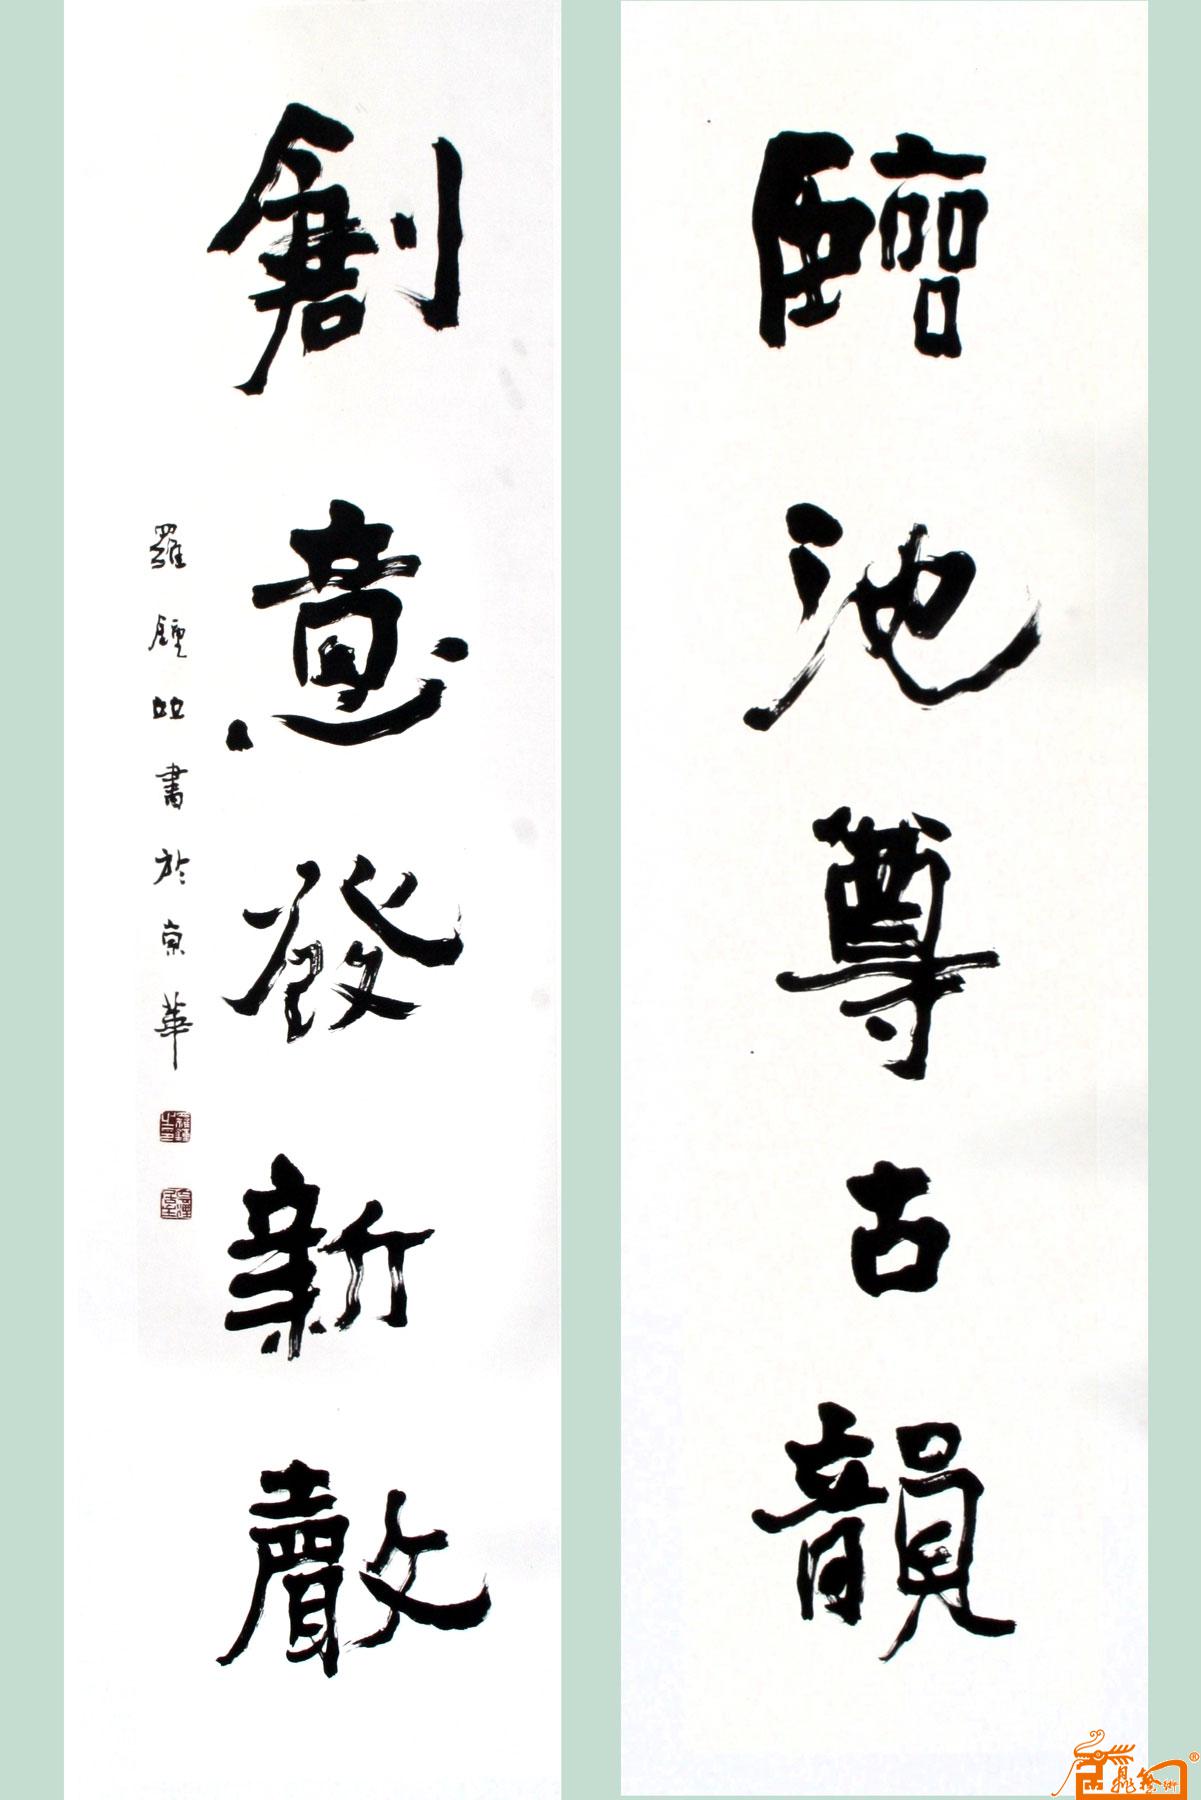 臨池尊古韻
創意發新聲
羅鍾 書於京華